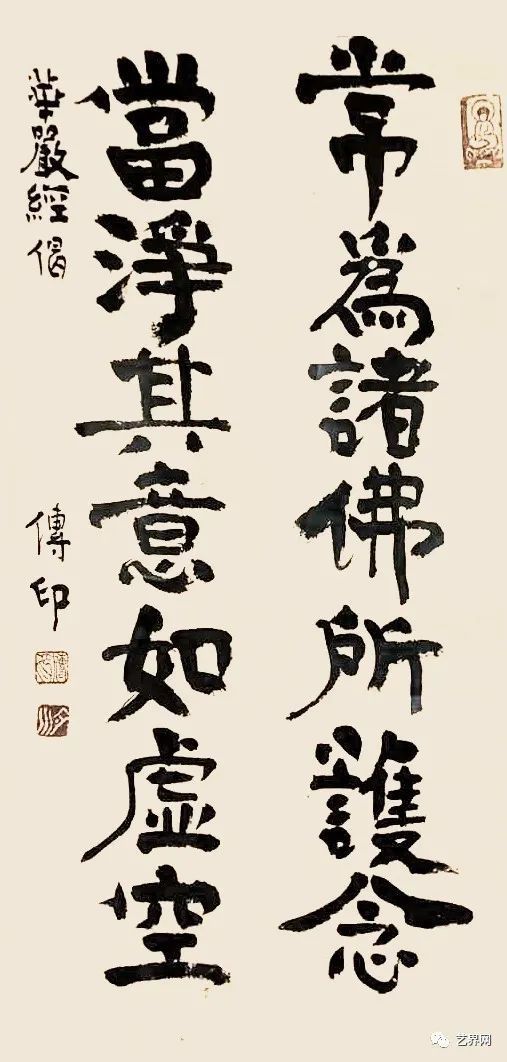 常為諸佛所護念
當淨其意如虛空
華嚴經偈
傳印
艺界网